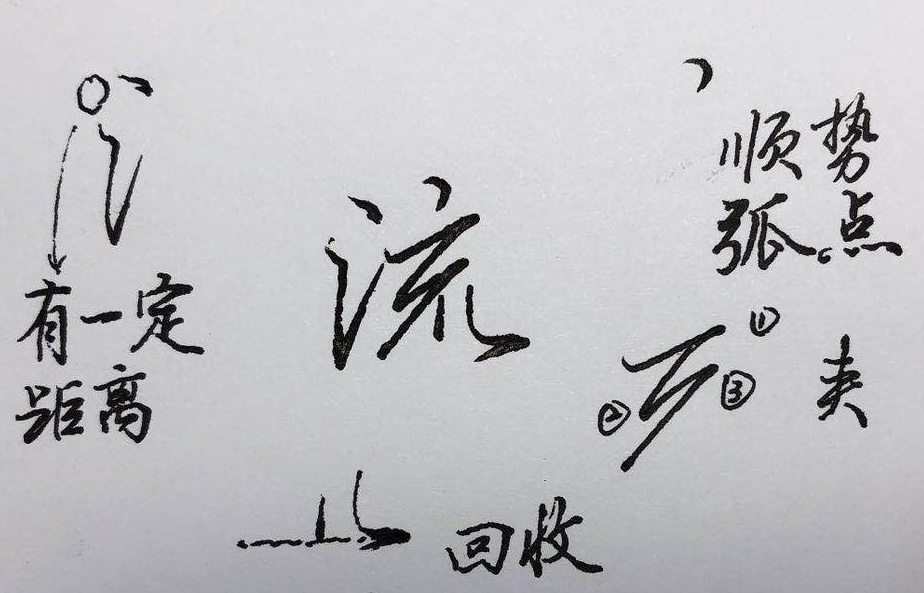 顺势
弧点
流
有一定
距离
①
②
③
夹
回收